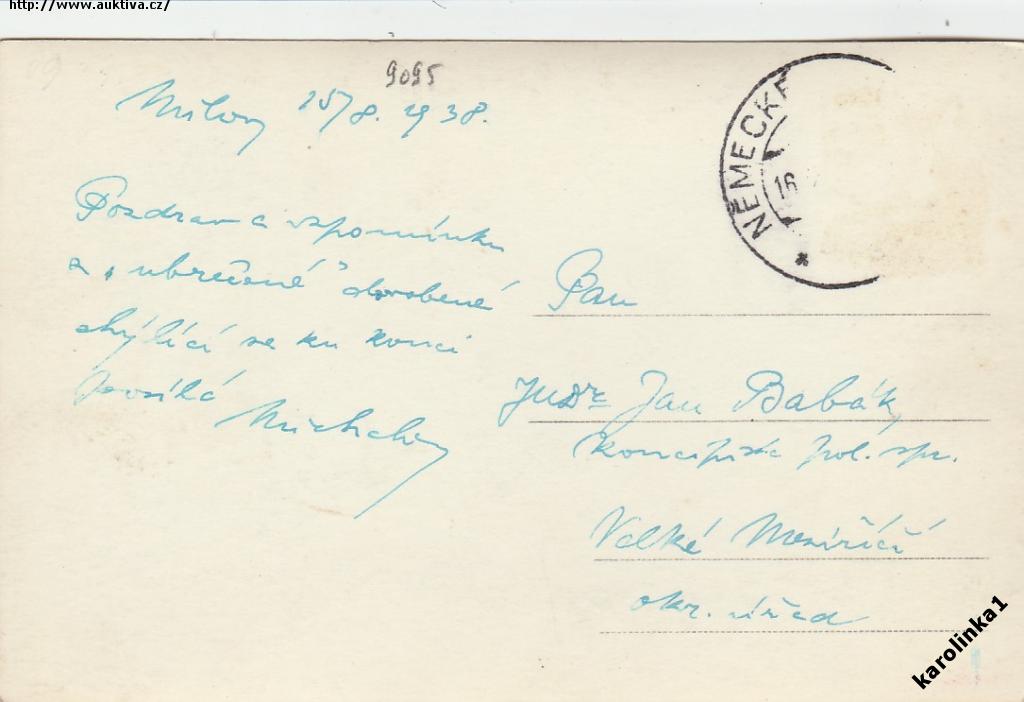 http://www.auktiva.cz/
9095
Milovy 15/8. 1938.
Pozdrav a vzpomínku
z „ubrečené" dovolené
chýlící se ku konci
posílá
Pan
JUDr Jan Babák,
koncipista pol. spr.
Velké Meziříčí
okr. úřad
NĚMECKÉ
16
karolinka1